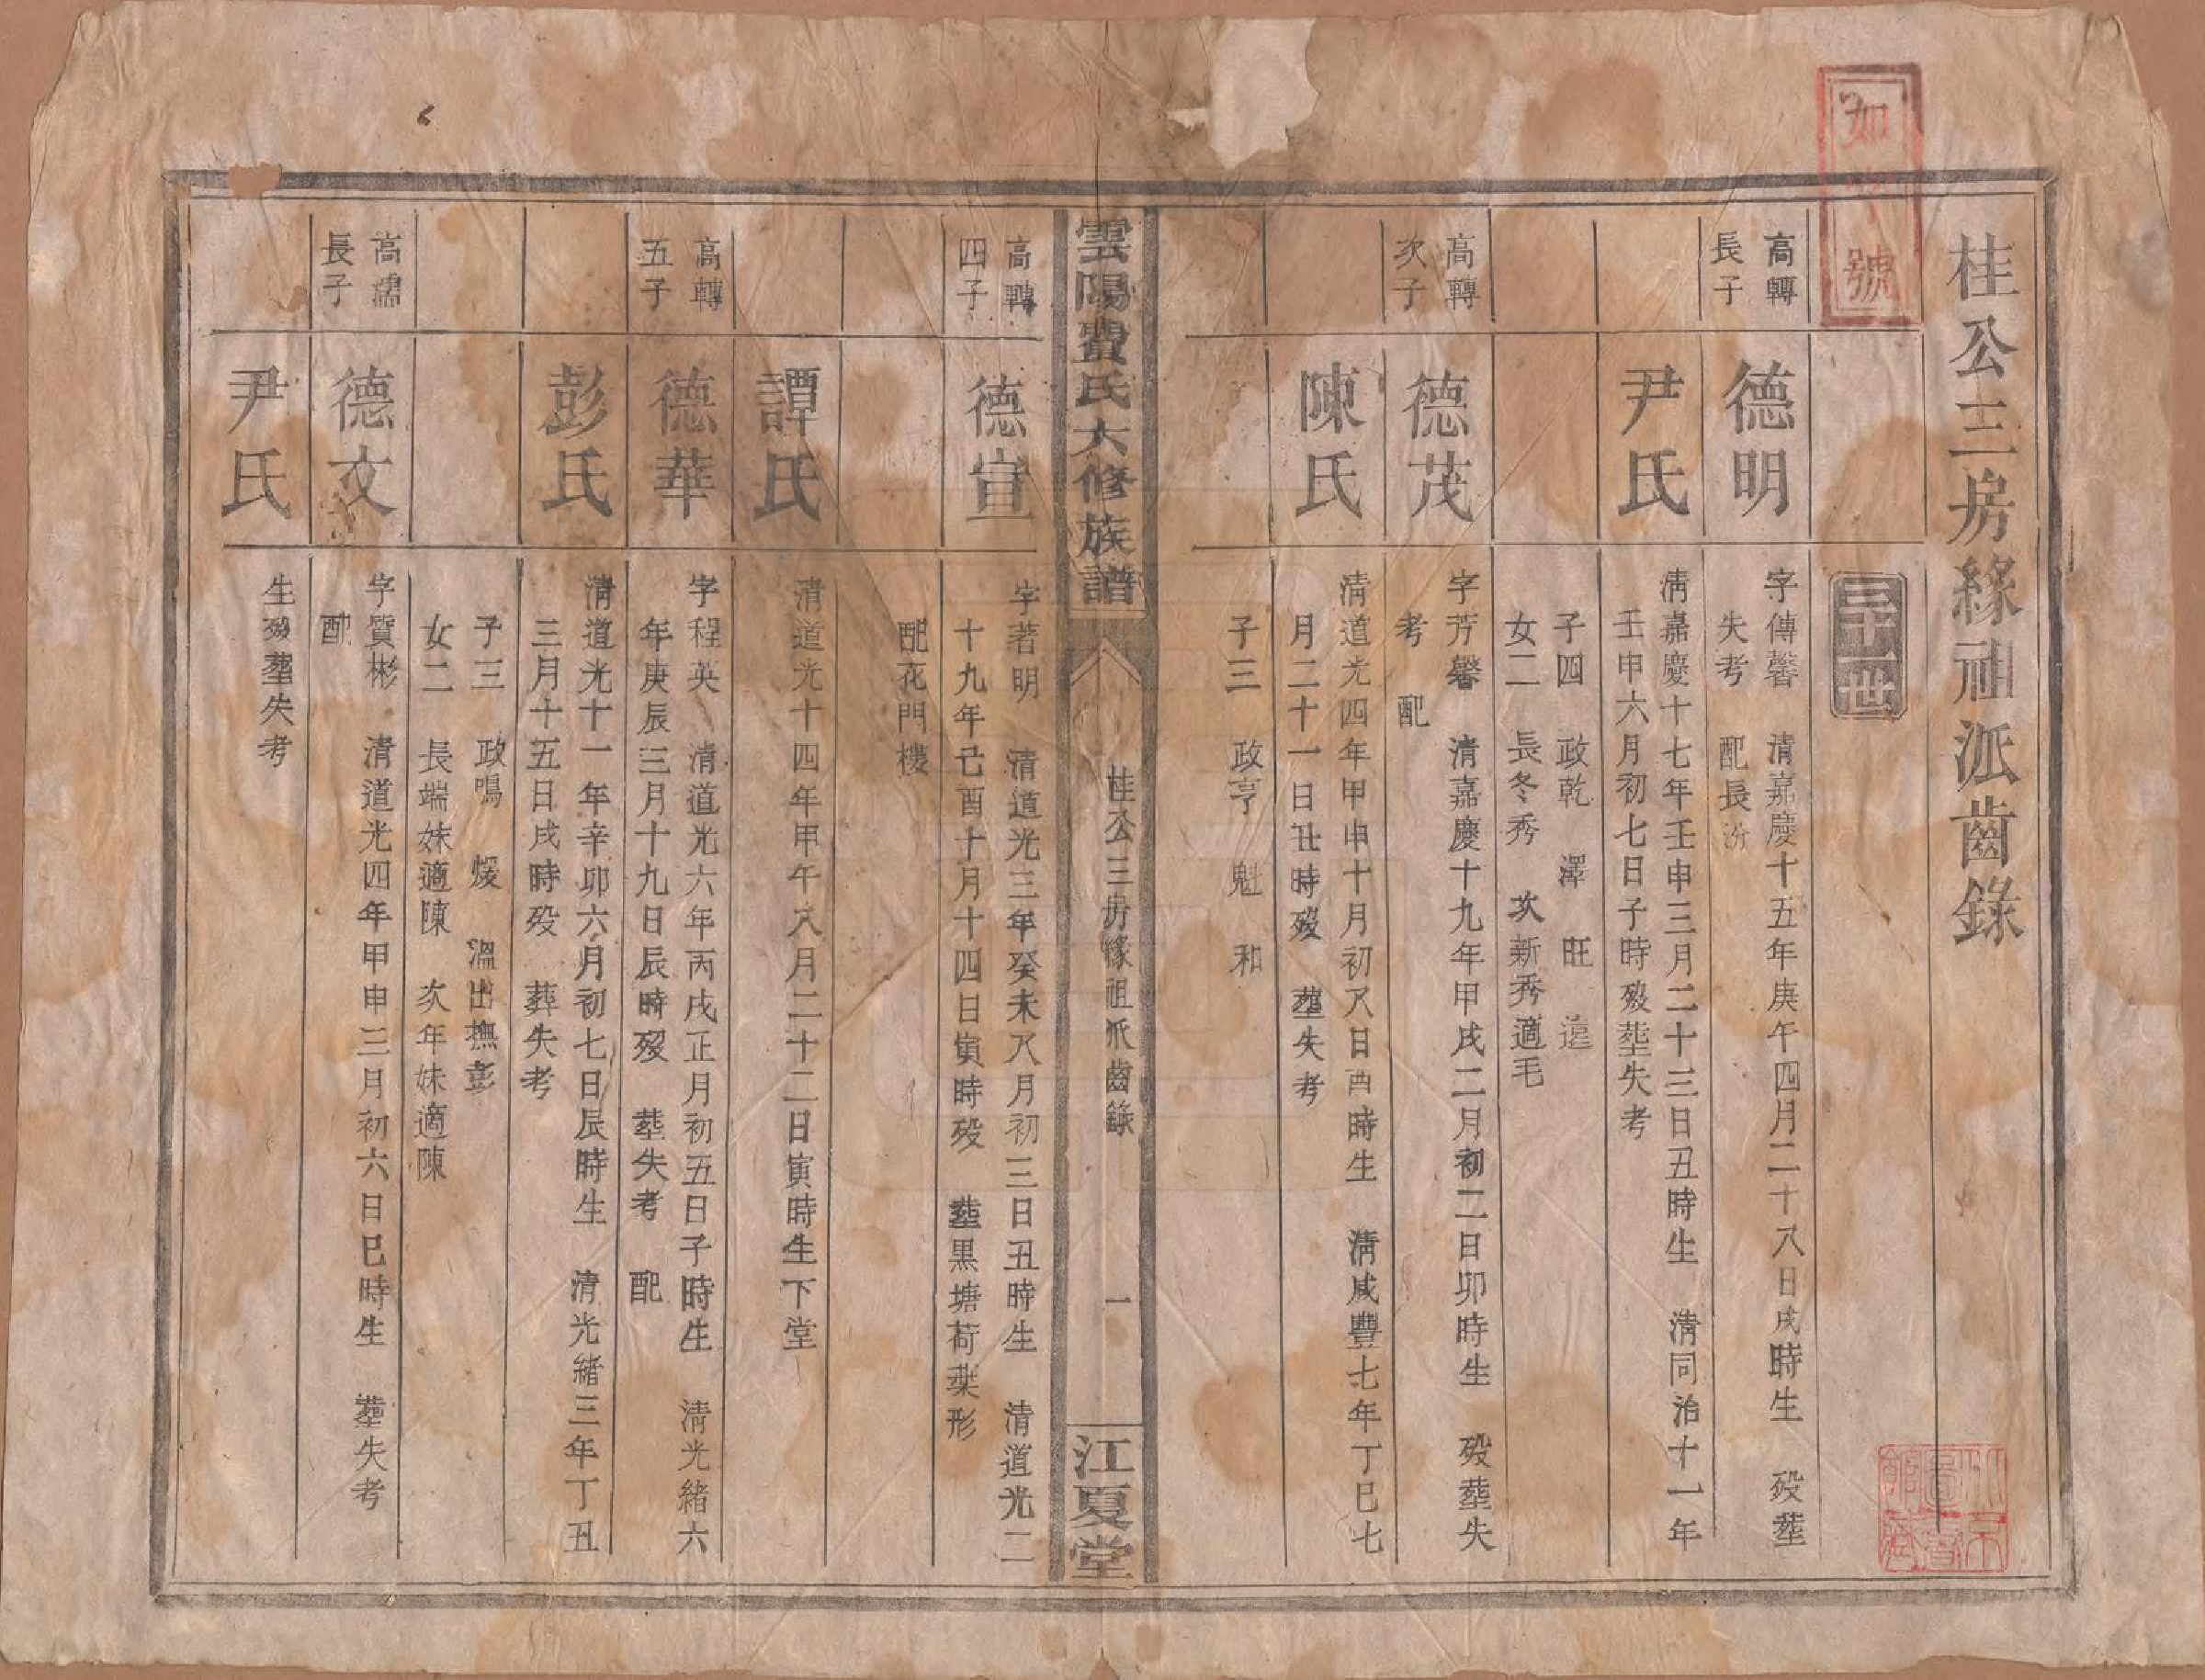 桂公三房緣祖派齒錄
如字號
三十一世
高轉
長子
德明
字傳馨 清嘉慶十五年庚午四月二十八日戌時生 歿塟
失考 配長汾
尹氏
淸嘉慶十七年壬申三月二十三日丑時生 清同治十一年
壬申六月初七日子時歿塟失考
子四 政乾 澤 旺 遠
女二 長冬秀 次新秀適毛
高轉
次子
德茂
字芳馨 清嘉慶十九年甲戌二月初二日卯時生 歿塟失
考 配
陳氏
清道光四年甲申十月初八日酉時生 清咸豐七年丁巳七
月二十一日丑時歿 塟失考
子三 政亨 魁 和
雲陽費氏六修族譜
桂公三房緣祖派齒錄
一
江夏堂
高轉
四子
德宣
字著明 清道光三年癸未八月初三日丑時生 清道光二
十九年己酉十月十四日寅時歿 塟黑塘荷葉形
配花門樓
譚氏
清道光十四年甲午八月二十二日寅時生下堂
高轉
五子
德華
字程英 清道光六年丙戌正月初五日子時生 清光緒六
年庚辰三月十九日辰時歿 塟失考 配
彭氏
清道光十一年辛卯六月初七日辰時生 清光緒三年丁丑
三月十五日戌時歿 葬失考
子三 政鳴 煖 溫出撫彭
女二 長端妹適陳 次年妹適陳
高霱
長子
德文
字質彬 清道光四年甲申三月初六日巳時生 塟失考
配
尹氏
生歿塟失考